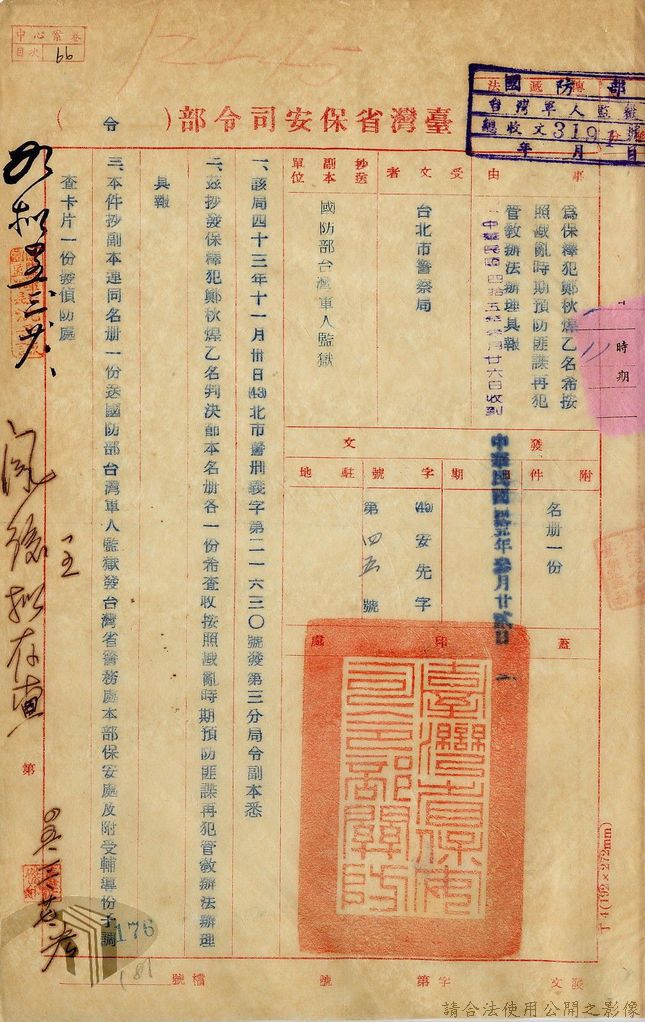 中心案卷
目次 66
國防部
台灣軍人監獄
總收文3191號
年 月 日
臺灣省保安司令部( 令 )
事由
為保釋犯鄭秋煇乙名希按
照戡亂時期預防匪諜再犯
管教辦法辦理具報
中華民國四拾五年叁月廿六日收到
時期
受文者
台北市警察局
抄送副本單位
國防部台灣軍人監獄
附件
名冊一份
發文
日期
中華民國四十五年叁月廿貳日
字號
(45)安先字
第四五號
駐地
蓋印處
臺灣省保安司令部關防
一、該局四十三年十一月卅日(43)北市警刑義字第二一六三〇號發第三分局令副本悉
二、茲抄發保釋犯鄭秋煇乙名判決節本名册各一份希查收按照戡亂時期預防匪諜再犯管教辦法辦理
具報
三、本件抄副本連同名册一份送國防部台灣軍人監獄發台灣省警務處本部保安處及附受輔導份子調
查卡片一份發偵防處
如擬
閱後擬存查
第
176
181
T-4(192×272mm)
發文 字第 號 檔號
請合法使用公開之影像